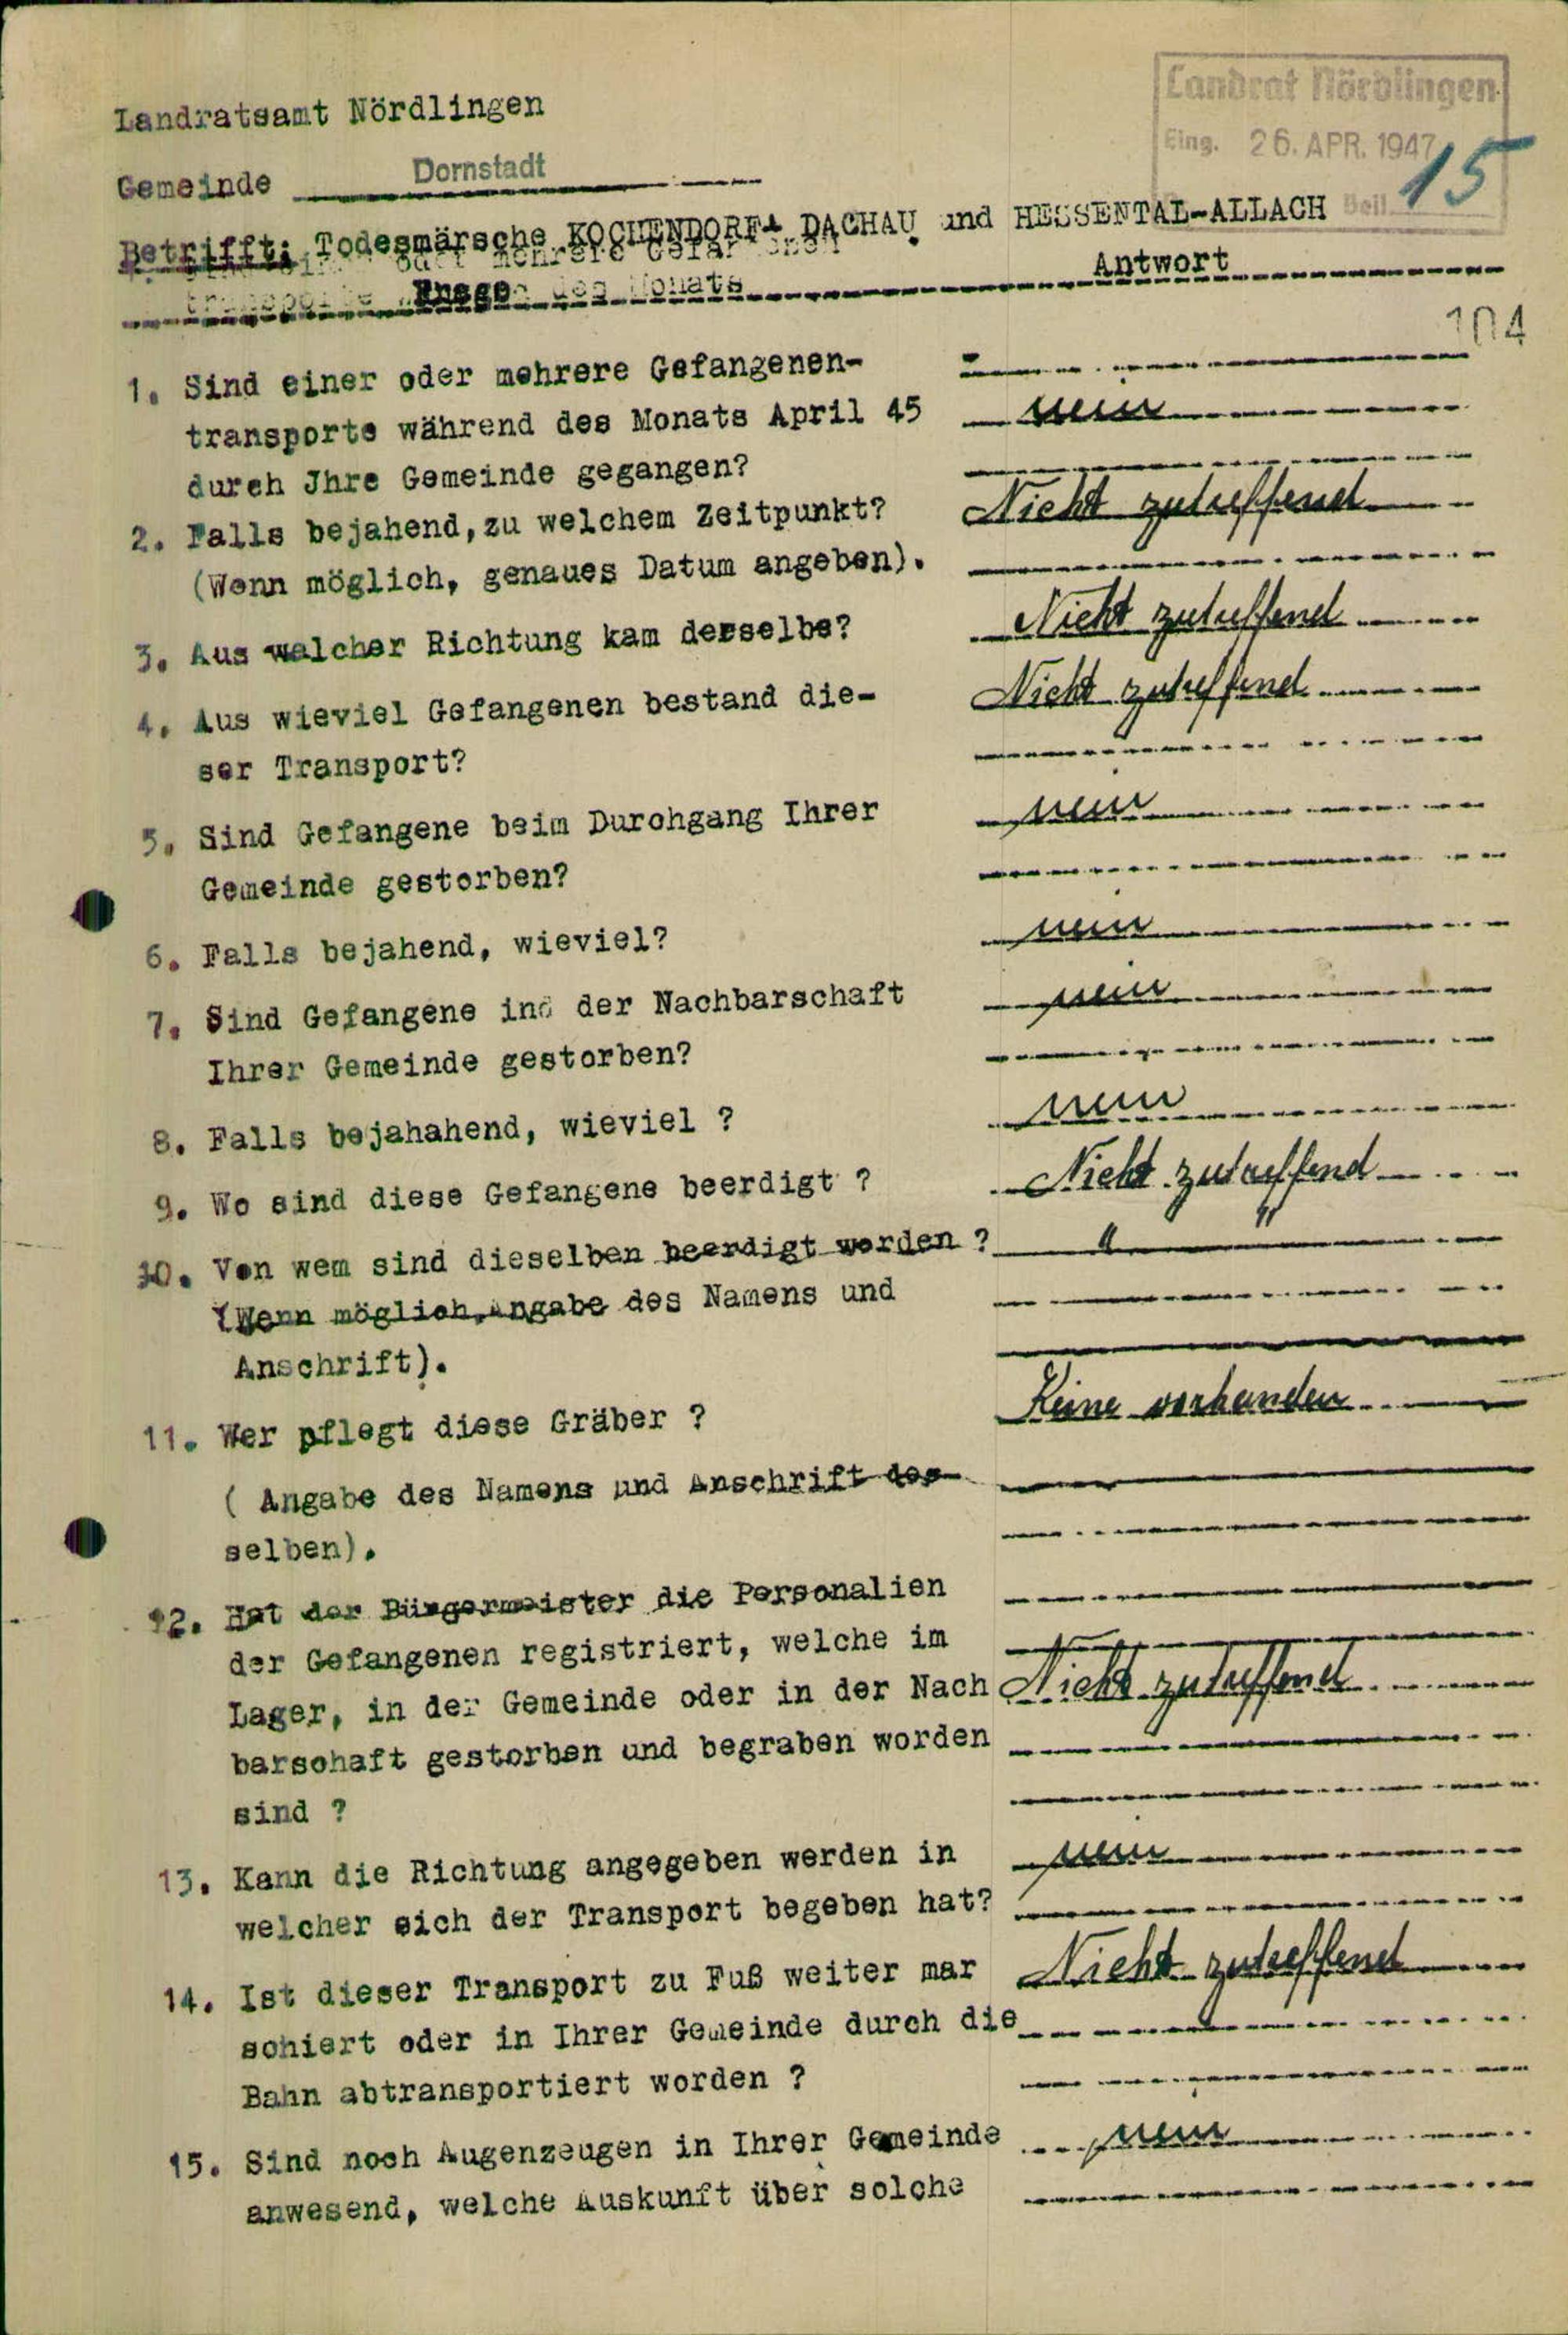 Landrat Nördlingen
Eing. 26. APR. 1947
Beil. 15
Landratsamt Nördlingen
Gemeinde Dornstadt
Betrifft: Todesmärsche KOCHENDORF- DACHAU und HESSENTAL-ALLACH
oder mehrere
Frage des Monats Antwort
104
1. Sind einer oder mehrere Gefangenen-
transporte während des Monats April 45 nein
durch Jhre Gemeinde gegangen?
2. Falls bejahend, zu welchem Zeitpunkt? Nicht zutreffend
(Wenn möglich, genaues Datum angeben).
3. Aus walcher Richtung kam derselbe? Nicht zutreffend
4. Aus wieviel Gefangenen bestand die- Nicht zutreffend
ser Transport?
5. Sind Gefangene beim Durchgang Ihrer nein
Gemeinde gestorben?
6. Falls bejahend, wieviel? nein
7. Sind Gefangene in der Nachbarschaft nein
Ihrer Gemeinde gestorben?
8. Falls bejahahend, wieviel ? nein
9. Wo sind diese Gefangene beerdigt ? Nicht zutreffend
10. Von wem sind dieselben beerdigt worden ? " "
(Wenn möglich, Angabe des Namens und
Anschrift).
11. Wer pflegt diese Gräber ? Keine vorhanden
( Angabe des Namens und Anschrift des-
selben).
12. Hat der Bürgermeister die Personalien
der Gefangenen registriert, welche im
Lager, in der Gemeinde oder in der Nach Nicht zutreffend
barschaft gestorben und begraben worden
sind ?
13. Kann die Richtung angegeben werden in nein
welcher sich der Transport begeben hat?
14. Ist dieser Transport zu Fuß weiter mar Nicht zutreffend
schiert oder in Ihrer Gemeinde durch die
Bahn abtransportiert worden ?
15. Sind noch Augenzeugen in Ihrer Gemeinde nein
anwesend, welche Auskunft über solche